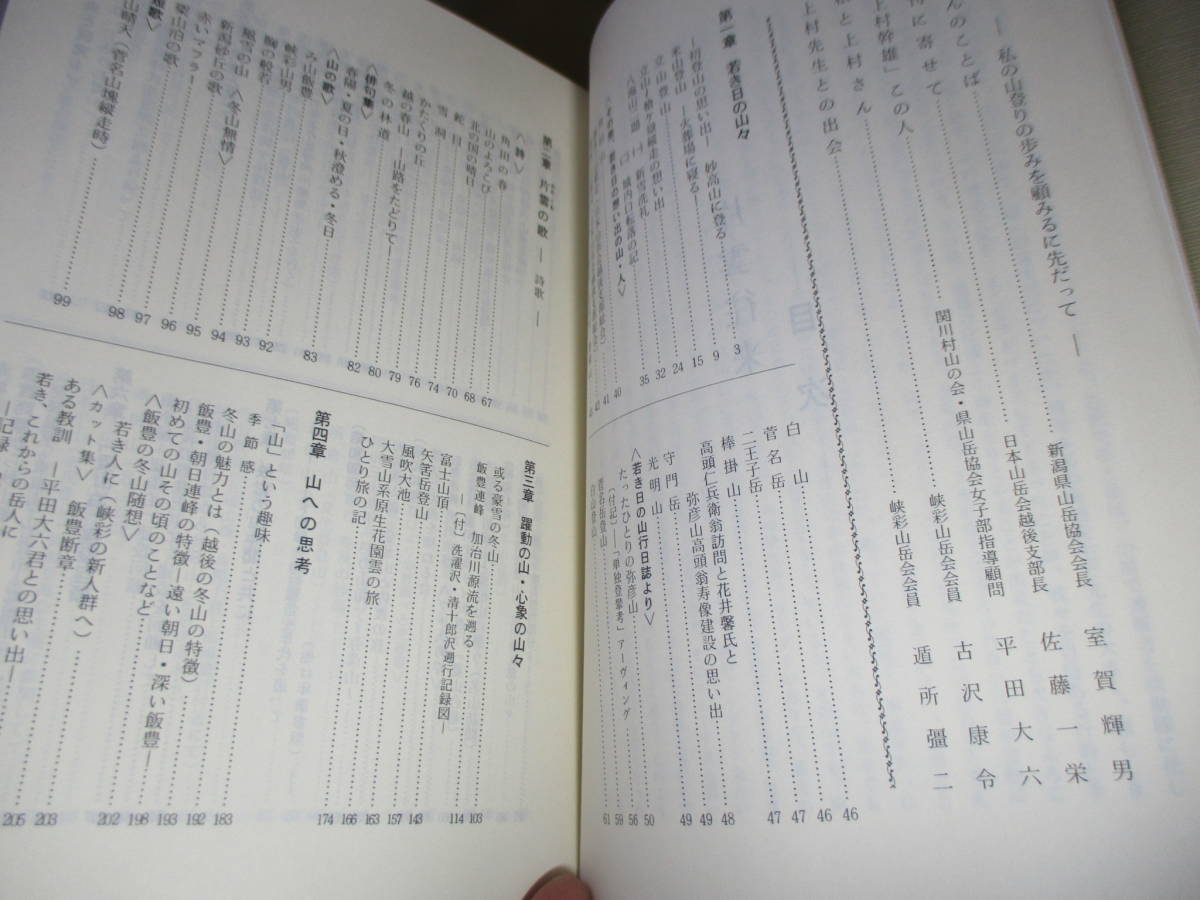 ― 私の山登りの歩みを顧みるに先だって ―
んのことば
新潟県山岳協会会長 室賀輝男
に寄せて
日本山岳会越後支部長 佐藤一栄
上村幹雄」この人
関川村山の会・県山岳協会女子部指導顧問 平田大六
と上村さん
峡彩山岳会会員 古沢康令
上村先生との出会
峡彩山岳会会員 遁所彊二
目次
第一章 若き日の山々
―初登山の思い出― 妙高山に登る 3
米山登山 ―大夕部場に寝る― 9
立山登山 15
立山―槍ヶ岳縦走の想い出 24
八海山 新雪洗礼 32
城内口転落の記 35
想い出の山・人〉
40
41
42
白山 46
菅名岳 46
二王子岳 47
棒掛山 47
高頭仁兵衛翁訪問と花井馨氏と 48
弥彦山高頭翁寿像建設の思い出 49
守門岳 49
光明山 50
〈若き日の山行日誌より〉
たったひとりの弥彦山 56
(付記)―「単独登攀考」アーヴィング 59
菅名岳登山 61
白山登山
第二章 片雲の歌 ― 詩歌 ―
〈詩〉
角田の春 67
山のよろこび 68
北の国の晴日 70
かたくりの丘 74
越の春山 ―山路をたどりて― 76
雪洞 79
蛇目 80
冬の林道 82
〈俳句集〉
春陽・夏の日・秋澄める・冬日 83
〈山の歌〉
み山飯豊 92
峡彩山男 93
胸の殿若 94
風雪の山 〈冬山無情〉 95
新潟砂丘の歌 96
赤いマフラー 97
粟山泊の歌 98
歌〉
山晴天 (菅名山塊縦走時) 99
第三章 躍動の山・心象の山々
或る豪雪の冬山 103
飯豊連峰 加治川源流を遡る 114
―(付) 洗濯沢・清十郎沢遡行記録図―
富士山頂 143
矢筈岳登山 157
風吹大池 163
大雪山系原生花園雲の旅 166
ひとり旅の記 174
第四章 山への思考
「山」という趣味 183
季節感 192
冬山の魅力とは (越後の冬山の特徴) 193
飯豊・朝日連峰の特徴―遠い朝日・深い飯豊― 198
初めての山その頃のことなど 202
〈飯豊の冬山随想〉
若き人に (峡彩の新人群へ) 203
〈カット集〉 飯豊断章
ある教訓 ―平田大六君との思い出― 205
若き、これからの岳人に
―記録